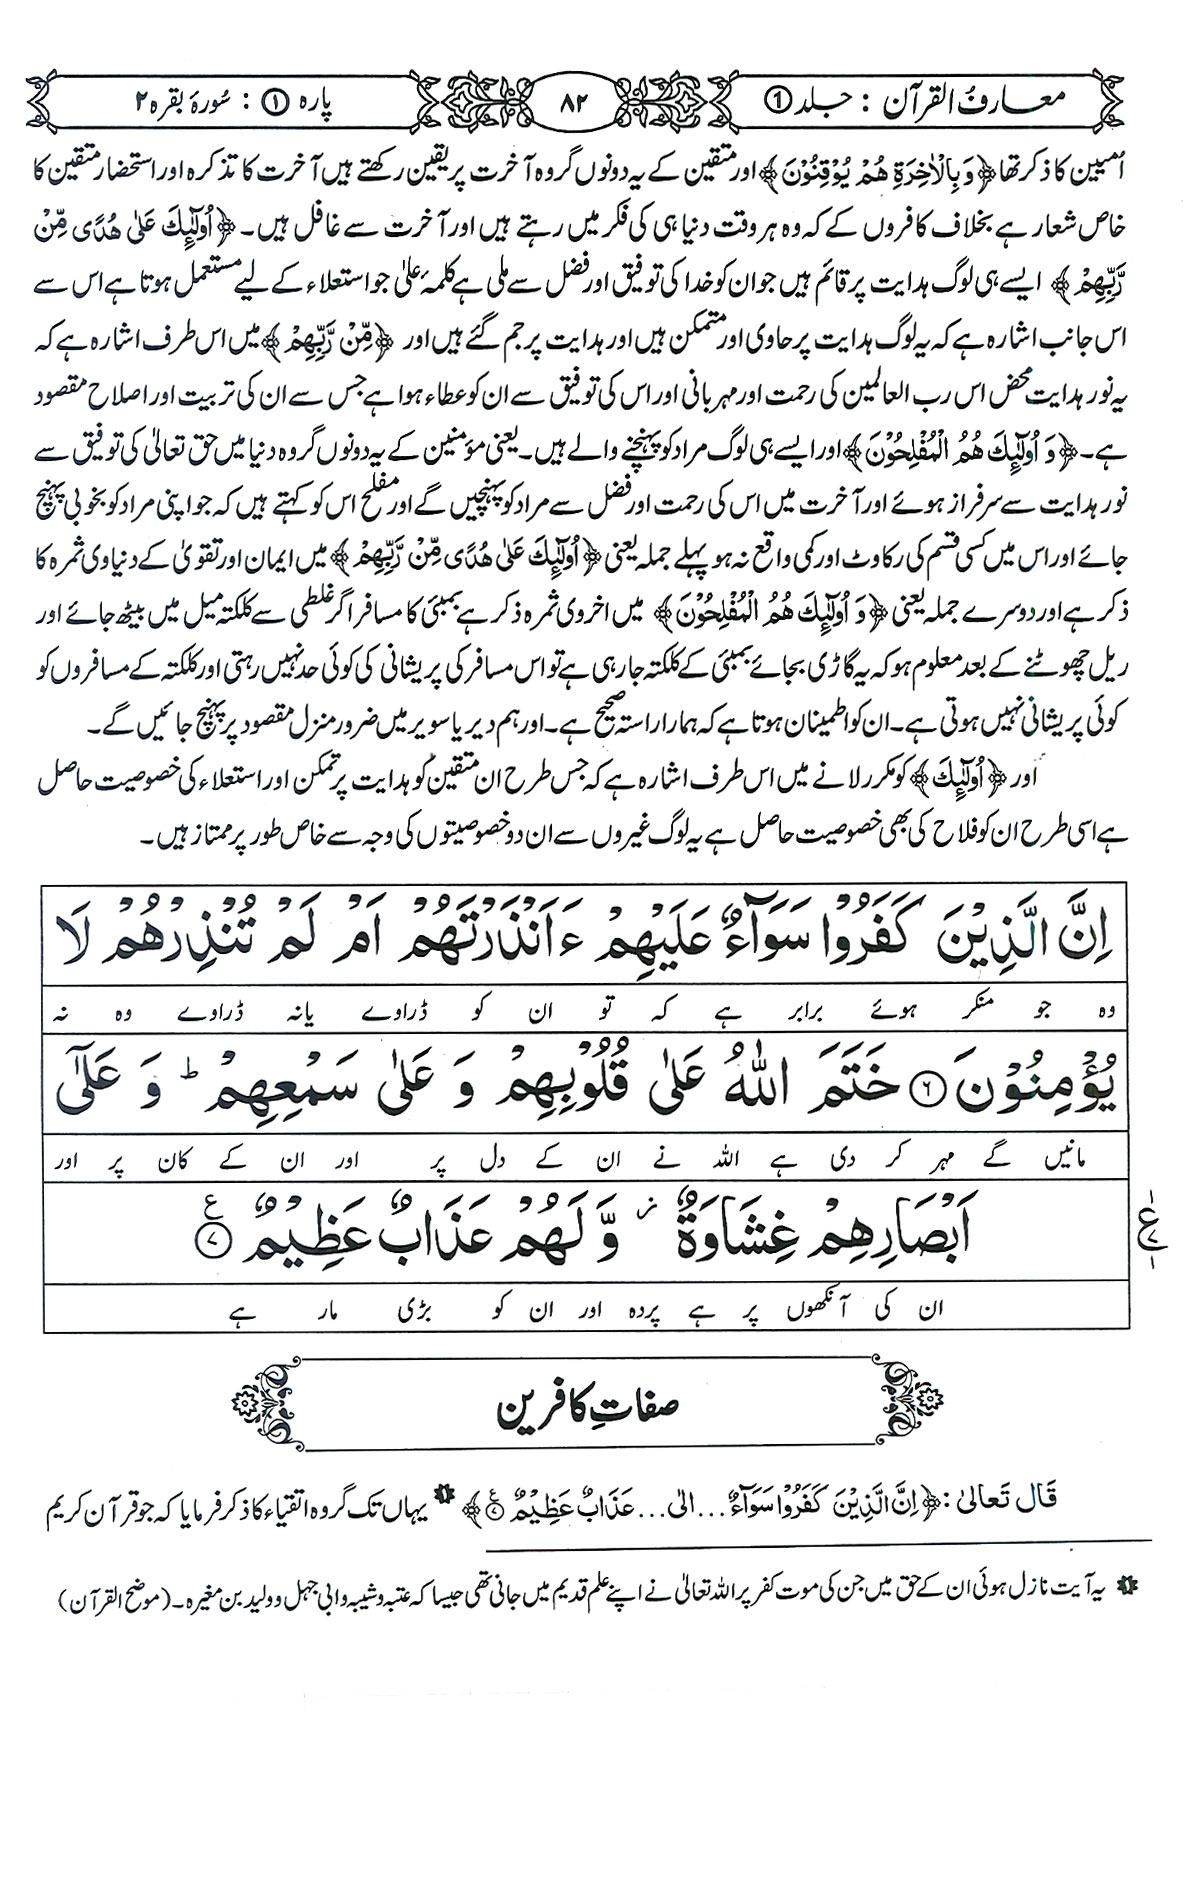 معارفُ القرآن : جلد ①
۸۲
پارہ ① : سُورۂ بقرہ ۲
اُمیین کا ذکر تھا ﴿وَبِالْاٰخِرَةِ هُمْ يُوْقِنُوْنَ﴾ اور متقین کے یہ دونوں گروہ آخرت پر یقین رکھتے ہیں آخرت کا تذکرہ اور استحضار متقین کا
خاص شعار ہے بخلاف کافروں کے کہ وہ ہر وقت دنیا ہی کی فکر میں رہتے ہیں اور آخرت سے غافل ہیں۔ ﴿اُولٰٓئِكَ عَلٰى هُدًى مِّنْ
رَّبِّهِمْ﴾ ایسے ہی لوگ ہدایت پر قائم ہیں جو ان کو خدا کی توفیق اور فضل سے ملی ہے کلمۂ علیٰ جو استعلاء کے لیے مستعمل ہوتا ہے اس سے
اس جانب اشارہ ہے کہ یہ لوگ ہدایت پر حاوی اور متمکن ہیں اور ہدایت پر جم گئے ہیں اور ﴿مِّنْ رَّبِّهِمْ﴾ میں اس طرف اشارہ ہے کہ
یہ نور ہدایت محض اس رب العالمین کی رحمت اور مہربانی اور اس کی توفیق سے ان کو عطاء ہوا ہے جس سے ان کی تربیت اور اصلاح مقصود
ہے۔ ﴿وَ اُولٰٓئِكَ هُمُ الْمُفْلِحُوْنَ﴾ اور ایسے ہی لوگ مراد کو پہنچنے والے ہیں۔ یعنی مؤمنین کے یہ دونوں گروہ دنیا میں حق تعالیٰ کی توفیق سے
نور ہدایت سے سرفراز ہوئے اور آخرت میں اس کی رحمت اور فضل سے مراد کو پہنچیں گے اور مفلح اس کو کہتے ہیں کہ جو اپنی مراد کو بخوبی پہنچ
جائے اور اس میں کسی قسم کی رکاوٹ اور کمی واقع نہ ہو پہلے جملہ یعنی ﴿اُولٰٓئِكَ عَلٰى هُدًى مِّنْ رَّبِّهِمْ﴾ میں ایمان اور تقویٰ کے دنیاوی ثمرہ کا
ذکر ہے اور دوسرے جملہ یعنی ﴿وَ اُولٰٓئِكَ هُمُ الْمُفْلِحُوْنَ﴾ میں اخروی ثمرہ ذکر ہے بمبئی کا مسافر اگر غلطی سے کلکتہ میل میں بیٹھ جائے اور
ریل چھوٹنے کے بعد معلوم ہو کہ یہ گاڑی بجائے بمبئی کے کلکتہ جا رہی ہے تو اس مسافر کی پریشانی کی کوئی حد نہیں رہتی اور کلکتہ کے مسافروں کو
کوئی پریشانی نہیں ہوتی ہے۔ ان کو اطمینان ہوتا ہے کہ ہمارا راستہ صحیح ہے۔ اور ہم دیر یا سویر میں ضرور منزل مقصود پر پہنچ جائیں گے۔
اور ﴿اُولٰٓئِكَ﴾ کو مکرر لانے میں اس طرف اشارہ ہے کہ جس طرح ان متقین کو ہدایت پر تمکن اور استعلاء کی خصوصیت حاصل
ہے اسی طرح ان کو فلاح کی بھی خصوصیت حاصل ہے یہ لوگ غیروں سے ان دو خصوصیتوں کی وجہ سے خاص طور پر ممتاز ہیں۔
اِنَّ الَّذِيْنَ كَفَرُوْا سَوَآءٌ عَلَيْهِمْ ءَاَنْذَرْتَهُمْ اَمْ لَمْ تُنْذِرْهُمْ لَا
وہ جو منکر ہوئے برابر ہے کہ تو ان کو ڈراوے یا نہ ڈراوے وہ نہ
يُؤْمِنُوْنَ ۶ خَتَمَ اللّٰهُ عَلٰى قُلُوْبِهِمْ وَ عَلٰى سَمْعِهِمْ ؕ وَ عَلٰٓى
مانیں گے مہر کر دی ہے اللہ نے ان کے دل پر اور ان کے کان پر اور
اَبْصَارِهِمْ غِشَاوَةٌ ز وَّ لَهُمْ عَذَابٌ عَظِيْمٌ ع ۷
ع ۷
ان کی آنکھوں پر ہے پردہ اور ان کو بڑی مار ہے
صفاتِ کافرین
قَالَ تَعَالیٰ: ﴿اِنَّ الَّذِيْنَ كَفَرُوْا سَوَآءٌ...الی...عَذَابٌ عَظِيْمٌ ۷﴾ ❶ یہاں تک گروہ اتقیاء کا ذکر فرمایا کہ جو قرآن کریم
❶ یہ آیت نازل ہوئی ان کے حق میں جن کی موت کفر پر اللہ تعالیٰ نے اپنے علم قدیم میں جانی تھی جیسا کہ عتبہ و شیبہ و ابی جہل و ولید بن مغیرہ۔ (موضح القرآن)